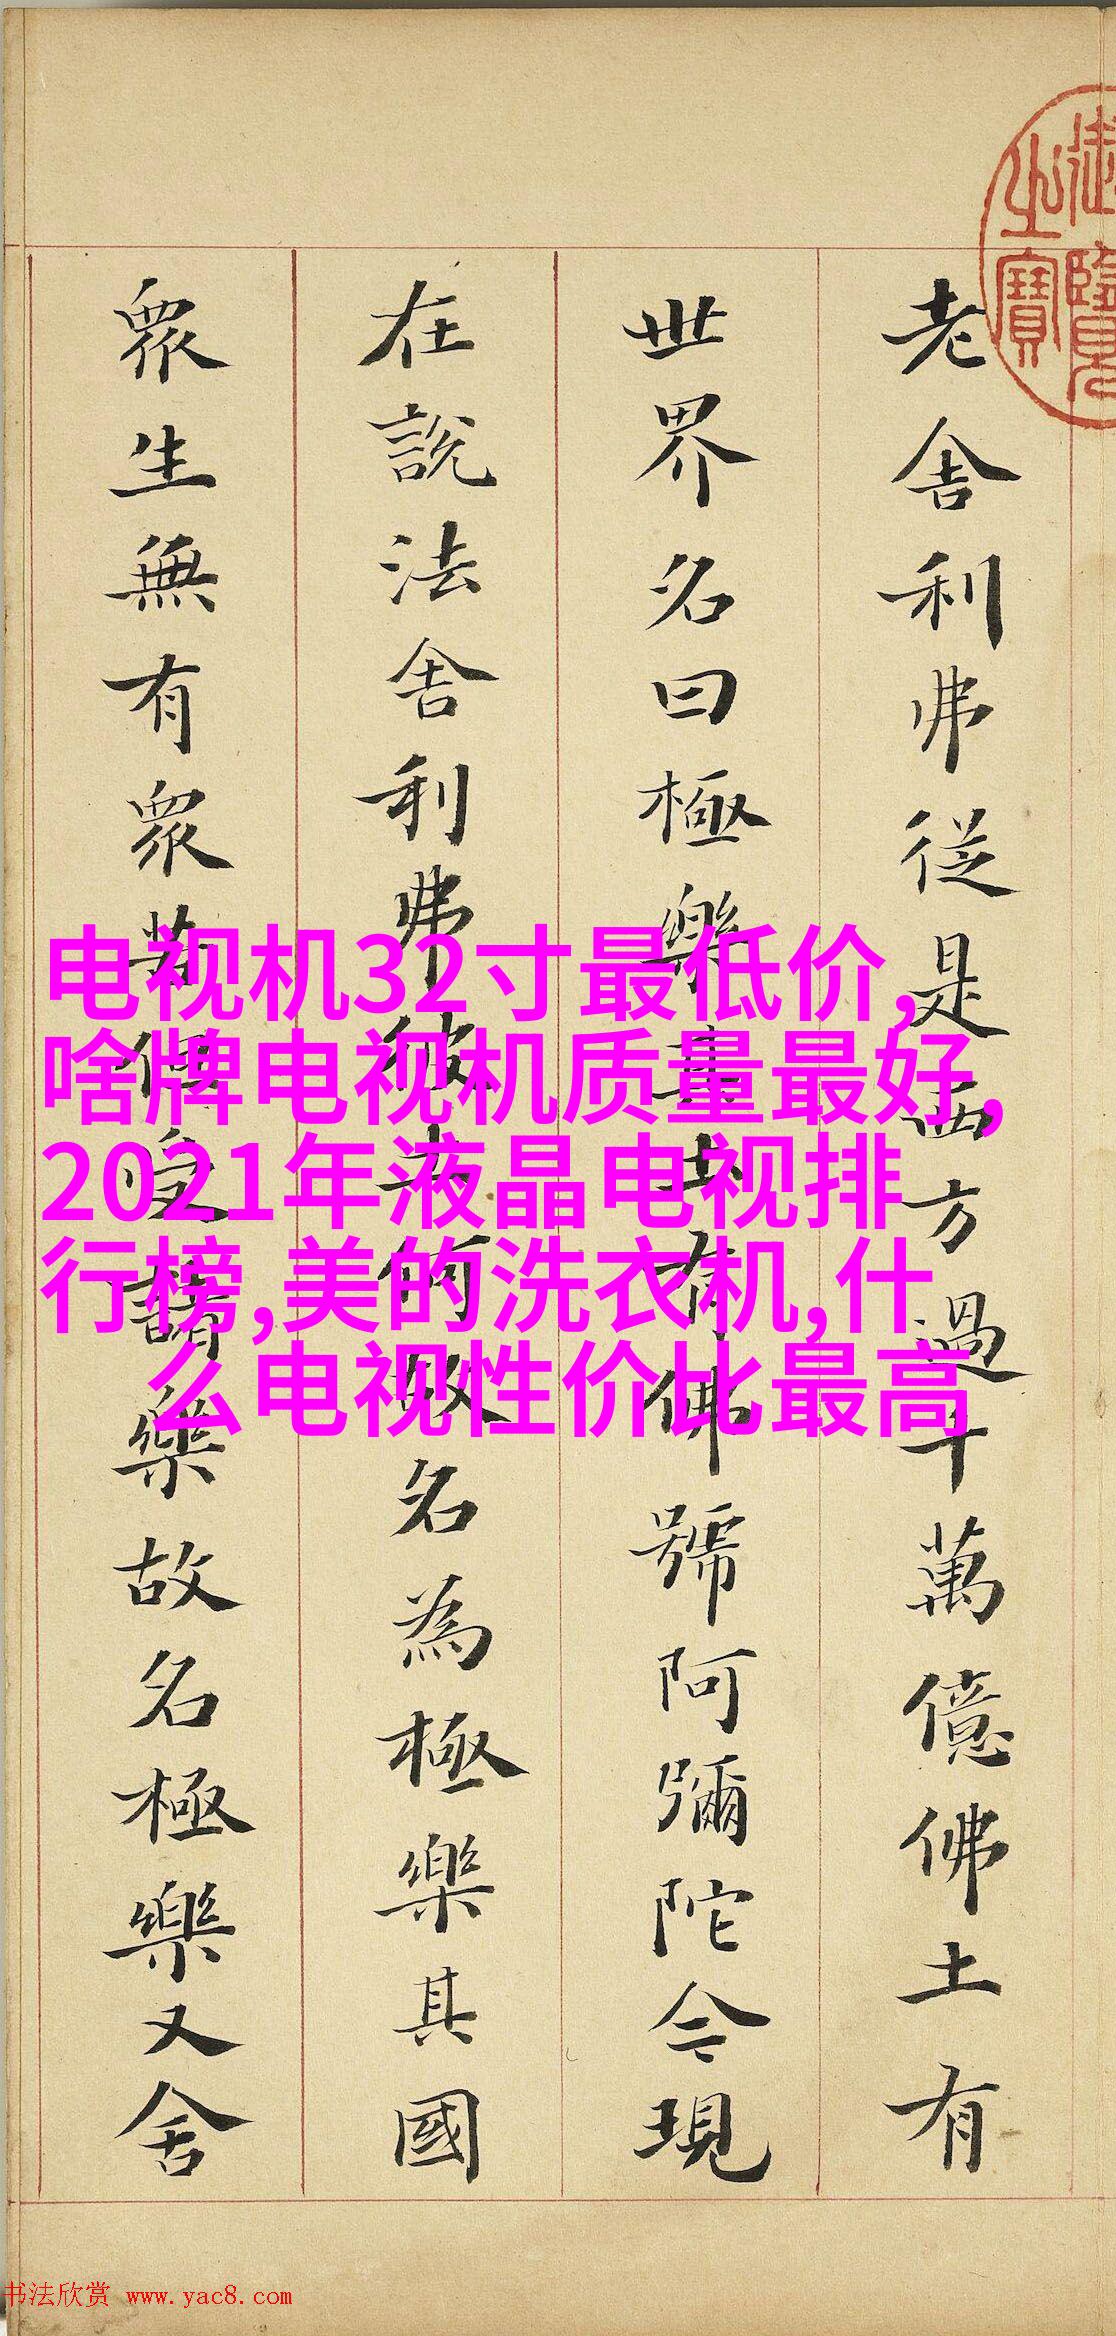 御覽之寶
老舍利弗從是西方過十萬億佛土有
世界名曰極樂其土有佛號阿彌陀今現
在說法舍利弗彼土何故名為極樂其國
眾生無有眾苦但受諸樂故名極樂又舍
电视机32寸最低价,
啥牌电视机质量最好,
2021年液晶电视排
行榜,美的洗衣机,什
么电视性价比最高
书法欣赏 www.yac8.com